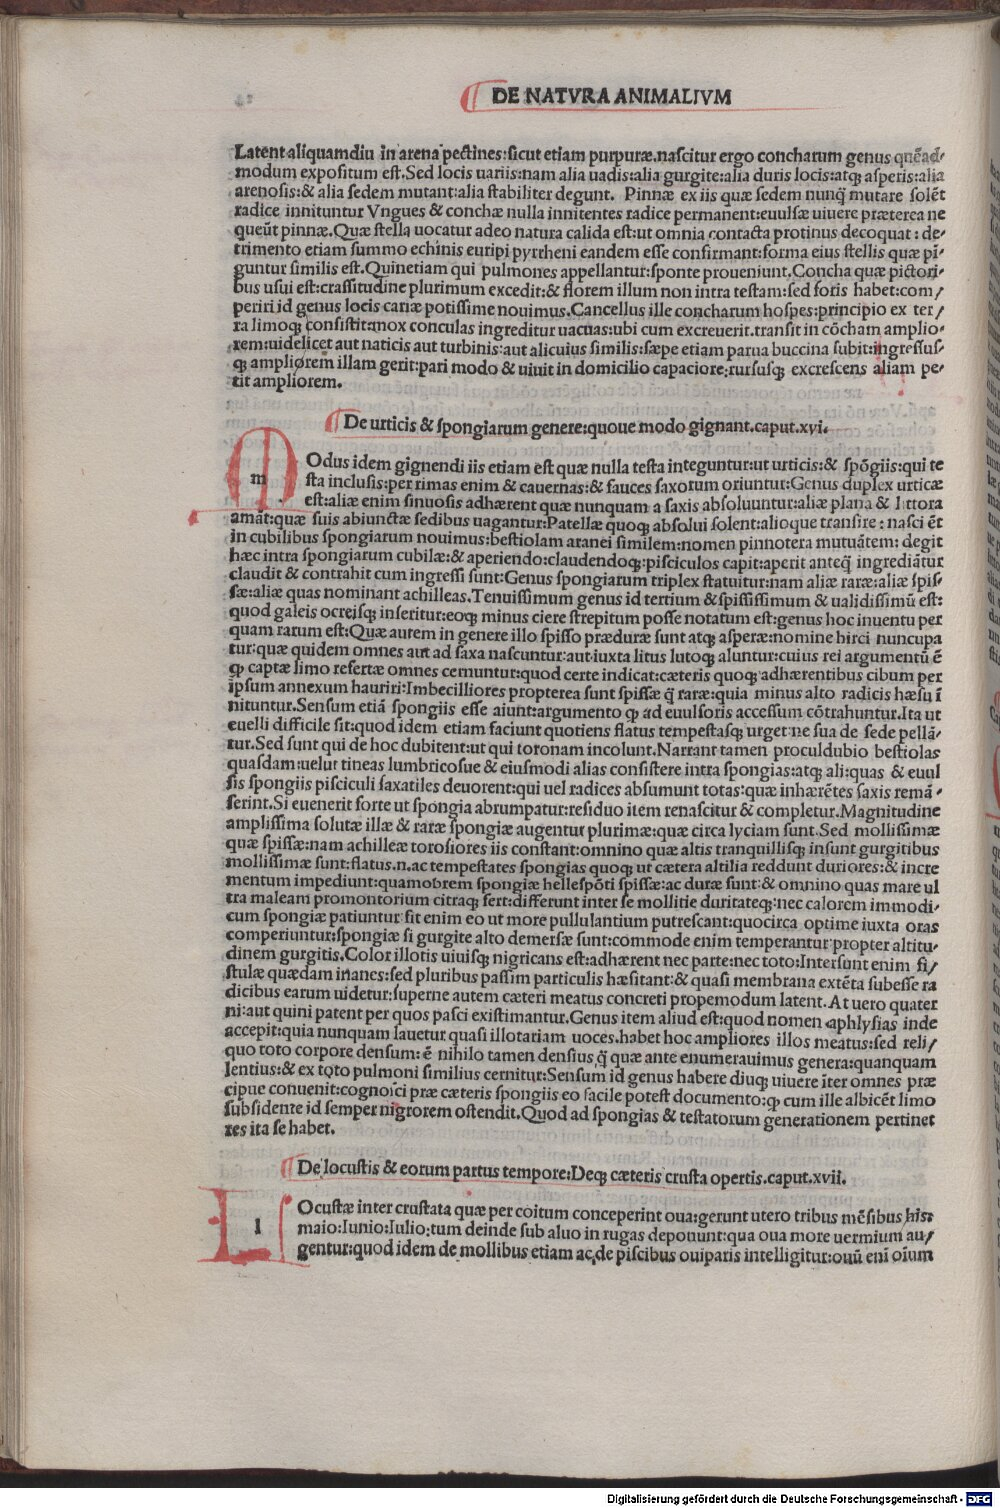 DE NATVRA ANIMALIVM
Latent aliquamdiu in arena pectines:sicut etiam purpuræ.nascitur ergo concharum genus quēad-
modum expositum est.Sed locis uariis:nam alia uadis:alia gurgite:alia duris locis:atq; asperis:alia
arenosis:& alia sedem mutant:alia stabiliter degunt. Pinnæ ex iis quæ sedem nunq̄ mutare solēt
radice innituntur Vngues & conchæ nulla innitentes radice permanent:euulsæ uiuere præterea ne
queūt pinnæ.Quæ stella uocatur adeo natura calida est:ut omnia cōtacta protinus decoquat: de-
trimento etiam summo echinis euripi pyrrheni eandem esse confirmant:forma eius stellis quæ pī-
guntur similis est.Quinetiam qui pulmones appellantur:sponte proueniunt.Concha quæ pictori-
bus usui est:crassitudine plurimum excedit:& florem illum non intra testam:sed foris habet:com/
periri id genus locis cariæ potissime nouimus.Cancellus ille concharum hospes:principio ex ter/
ra limoq; consistit:mox conculas ingreditur uacuas:ubi cum excreuerit.transit in cōcham amplio-
rem:uidelicet aut naticis aut turbinis:aut alicuius similis:sæpe etiam parua buccina subit:ingressus-
q; ampliorem illam gerit:pari modo & uiuit in domicilio capaciore:rursusq; excrescens aliam pe-
tit ampliorem.
De urticis & spongiarum genere:quoue modo gignant.caput.xvi.
m
Odus idem gignendi iis etiam est quæ nulla testa integuntur:ut urticis:& spōgiis:qui te
sta inclusis:per rimas enim & cauernas:& fauces saxorum oriuntur:Genus duplex urticæ
est:aliæ enim sinuosis adhærent quæ nunquam a saxis absoluuntur:aliæ plana & littora
amāt:quæ suis abiunctæ sedibus uagantur:Patellæ quoq; absolui solent:alioque transire: nasci ēt
in cubilibus spongiarum nouimus:bestiolam aranei similem:nomen pinnotera mutuātem: degit
hæc intra spongiarum cubilæ:& aperiendo:claudendoq;:pisciculos capit:aperit anteq̄ ingrediātur
claudit & contrahit cum ingressi sunt:Genus spongiarum triplex statuitur:nam aliæ raræ:aliæ spis-
sæ:aliæ quas nominant achilleas.Tenuissimum genus id tertium & spississimum & ualidissimū est:
quod galeis ocreisq; inseritur:eoq; minus ciere strepitum posse notatum est:genus hoc inuentu per
quam rarum est:Quæ autem in genere illo spisso prædurae sunt atq; asperæ:nomine hirci nuncupa
tur:quæ quidem omnes aut ad saxa nascuntur:aut iuxta litus lutoq; aluntur:cuius rei argumentū ē
ꝙ captæ limo refertæ omnes cernuntur:quod certe indicat:cæteris quoq; adhærentibus cibum per
ipsum annexum hauriri:Imbecilliores propterea sunt spissæ q̄ raræ:quia minus alto radicis hæsu ī
nituntur.Sensum etiā spongiis esse aiunt:argumento ꝙ ad euulsoris accessum cōtrahuntur.Ita ut
euelli difficile sit:quod idem etiam faciunt quotiens flatus tempestasq; urget:ne sua de sede pellā-
tur.Sed sunt qui de hoc dubitent:ut qui toronam incolunt.Narrant tamen proculdubio bestiolas
quasdam:uelut tineas lumbricosue & eiusmodi alias consistere intra spongias:atq; ali:quas & euul
sis spongiis pisciculi saxatiles deuorent:qui uel radices absumunt totas:quæ inhærētes saxis remā-
serint.Si euenerit forte ut spongia abrumpatur:residuo item renascitur & completur.Magnitudine
amplissima solutæ illæ & raræ spongiæ augentur plurimæ:quæ circa lyciam sunt.Sed mollissimæ
quæ spissæ:nam achilleæ torosiores iis constant:omnino quæ altis tranquillisq; insunt gurgitibus
mollissimæ sunt:flatus.n.ac tempestates spongias quoq; ut cætera altilia reddunt duriores:& incre
mentum impediunt:quamobrem spongiæ hellespōti spissæ:ac duræ sunt:& omnino quas mare ul
tra maleam promontorium citraq; fert:differunt inter se mollitie duritateq;:nec calorem immodi-
cum spongiæ patiuntur:fit enim eo ut more pullulantium putrescant:quocirca optime iuxta oras
comperiuntur:spongiæ si gurgite alto demersæ sunt:commode enim temperantur propter altitu-
dinem gurgitis.Color illotis uiuisq; nigricans est:adhærent nec parte:nec toto:Intersunt enim fi/
stulæ quædam inanes:sed pluribus passim particulis hæsitant:& quasi membrana extēta subesse ra
dicibus earum uidetur:superne autem cæteri meatus concreti propemodum latent.At uero quater
ni:aut quini patent per quos pasci existimantur.Genus item aliud est:quod nomen aphlysias inde
accepit:quia nunquam lauetur quasi illotariam uoces.habet hoc ampliores illos meatus:sed reli/
quo toto corpore densum: ē nihilo tamen densius q̄ quæ ante enumerauimus genera:quanquam
lentius:& ex toto pulmoni similius cernitur:Sensum id genus habere diuq; uiuere īter omnes præ
cipue conuenit:cognoīci præ cæteris spongiis eo facile potest documento:ꝙ cum ille albicēt limo
subsidente id semper nigrorem ostendit.Quod ad spongias & testatorum generationem pertinet
res ita se habet.
De locustis & eorum partus tempore:Deq; cæteris crusta opertis.caput.xvii.
l
Ocustæ inter crustata quæ per coitum conceperint oua:gerunt utero tribus mēsibus his:
maio:Iunio:Iulio:tum deinde sub aluo in rugas deponunt:qua oua more uermium au/
gentur:quod idem de mollibus etiam ac de piscibus ouiparis intelligitur:ouū eni oīum
Digitalisierung gefördert durch die Deutsche Forschungsgemeinschaft - DFG